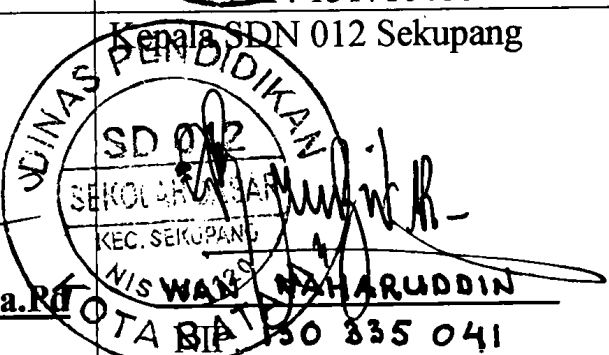 Kepala SDN 012 Sekupang
DINAS PENDIDIKAN
SD 012
SEKOLAH DASAR
KEC. SEKUPANG
NIS
KOTA BATAM
WAN NAHARUDDIN
a.Pd
NIP 130 335 041